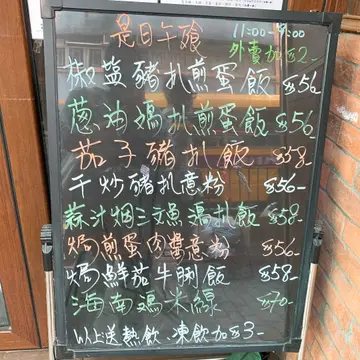 是日午飧
11:00-19:00
外賣加$2
椒盐豬扒煎蛋飯 $56
葱油鸡扒煎蛋飯 $56
茄子豬扒飯 $58-
干炒豬扒意粉 $56-
蒜汁烟三文魚鸡扒飯 $58-
焗煎蛋肉醬意粉 $56-
焗鮮茄牛脷飯 $58-
海南鸡米線 $70-
以上送热飲.凍飲加$3-